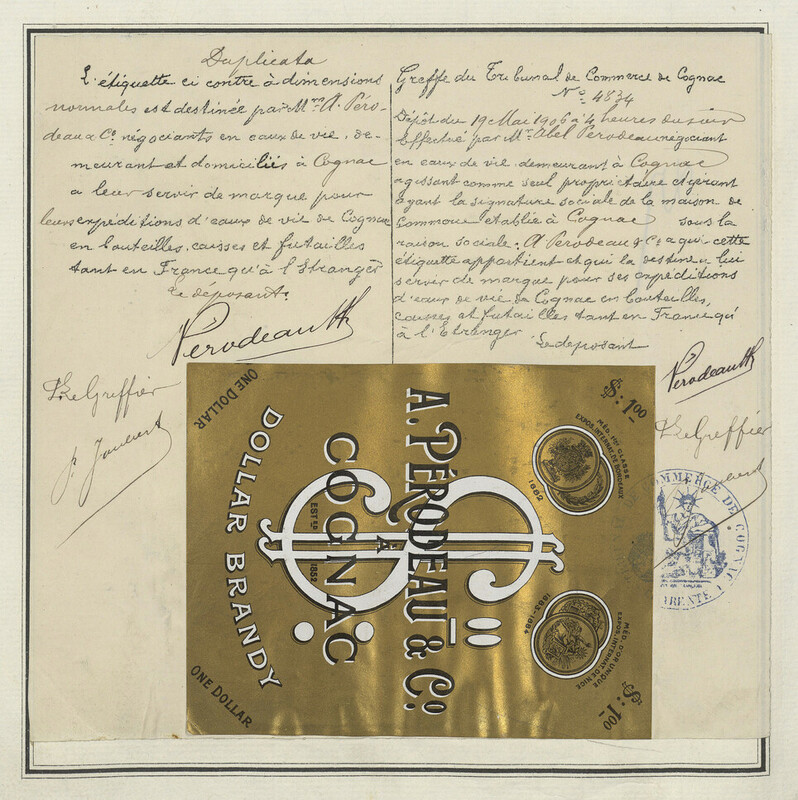 Duplicata
L'étiquette ci contre à dimensions
normales est destinée par Mrs A. Péro-
deau & Co négociants en eaux de vie, de-
meurant et domiciliés à Cognac
a leur servir de marque pour
leurs expéditions d'eaux de vie de Cognac
en bouteilles, caisses et futailles
tant en France qu'à l'Etranger
Le déposant.
Pérodeau
Le Greffier
Greffe du Tribunal de Commerce de Cognac
No 4834
Dépôt du 19 Mai 1906 à 4 heures du soir
Effectué par Mr Abel Perodeau négociant
en eaux de vie demeurant à Cognac
agissant comme seul propriétaire et gérant
ayant la signature sociale de la maison de
Commerce établie à Cognac sous la
raison sociale: A Perodeau & Co a qui cette
étiquette appartient et qui la destine a lui
servir de marque pour ses expéditions
d'eaux de vie de Cognac en bouteilles,
caisses et futailles tant en France qu'
à l'Etranger
Le deposant
Pérodeau
Le Greffier
COMMERCE DE COGNAC
A. PÉRODEAU & Co.
COGNAC
ESTED 1852
DOLLAR BRANDY
ONE DOLLAR
ONE DOLLAR
$:1.00
$:1.00
MÉD. 1re CLASSE
EXPOS. INTERNAT. DE BORDEAUX
1882
MÉD. D'OR UNIQUE
EXPOS. INTERNAT. DE NICE
1883-1884